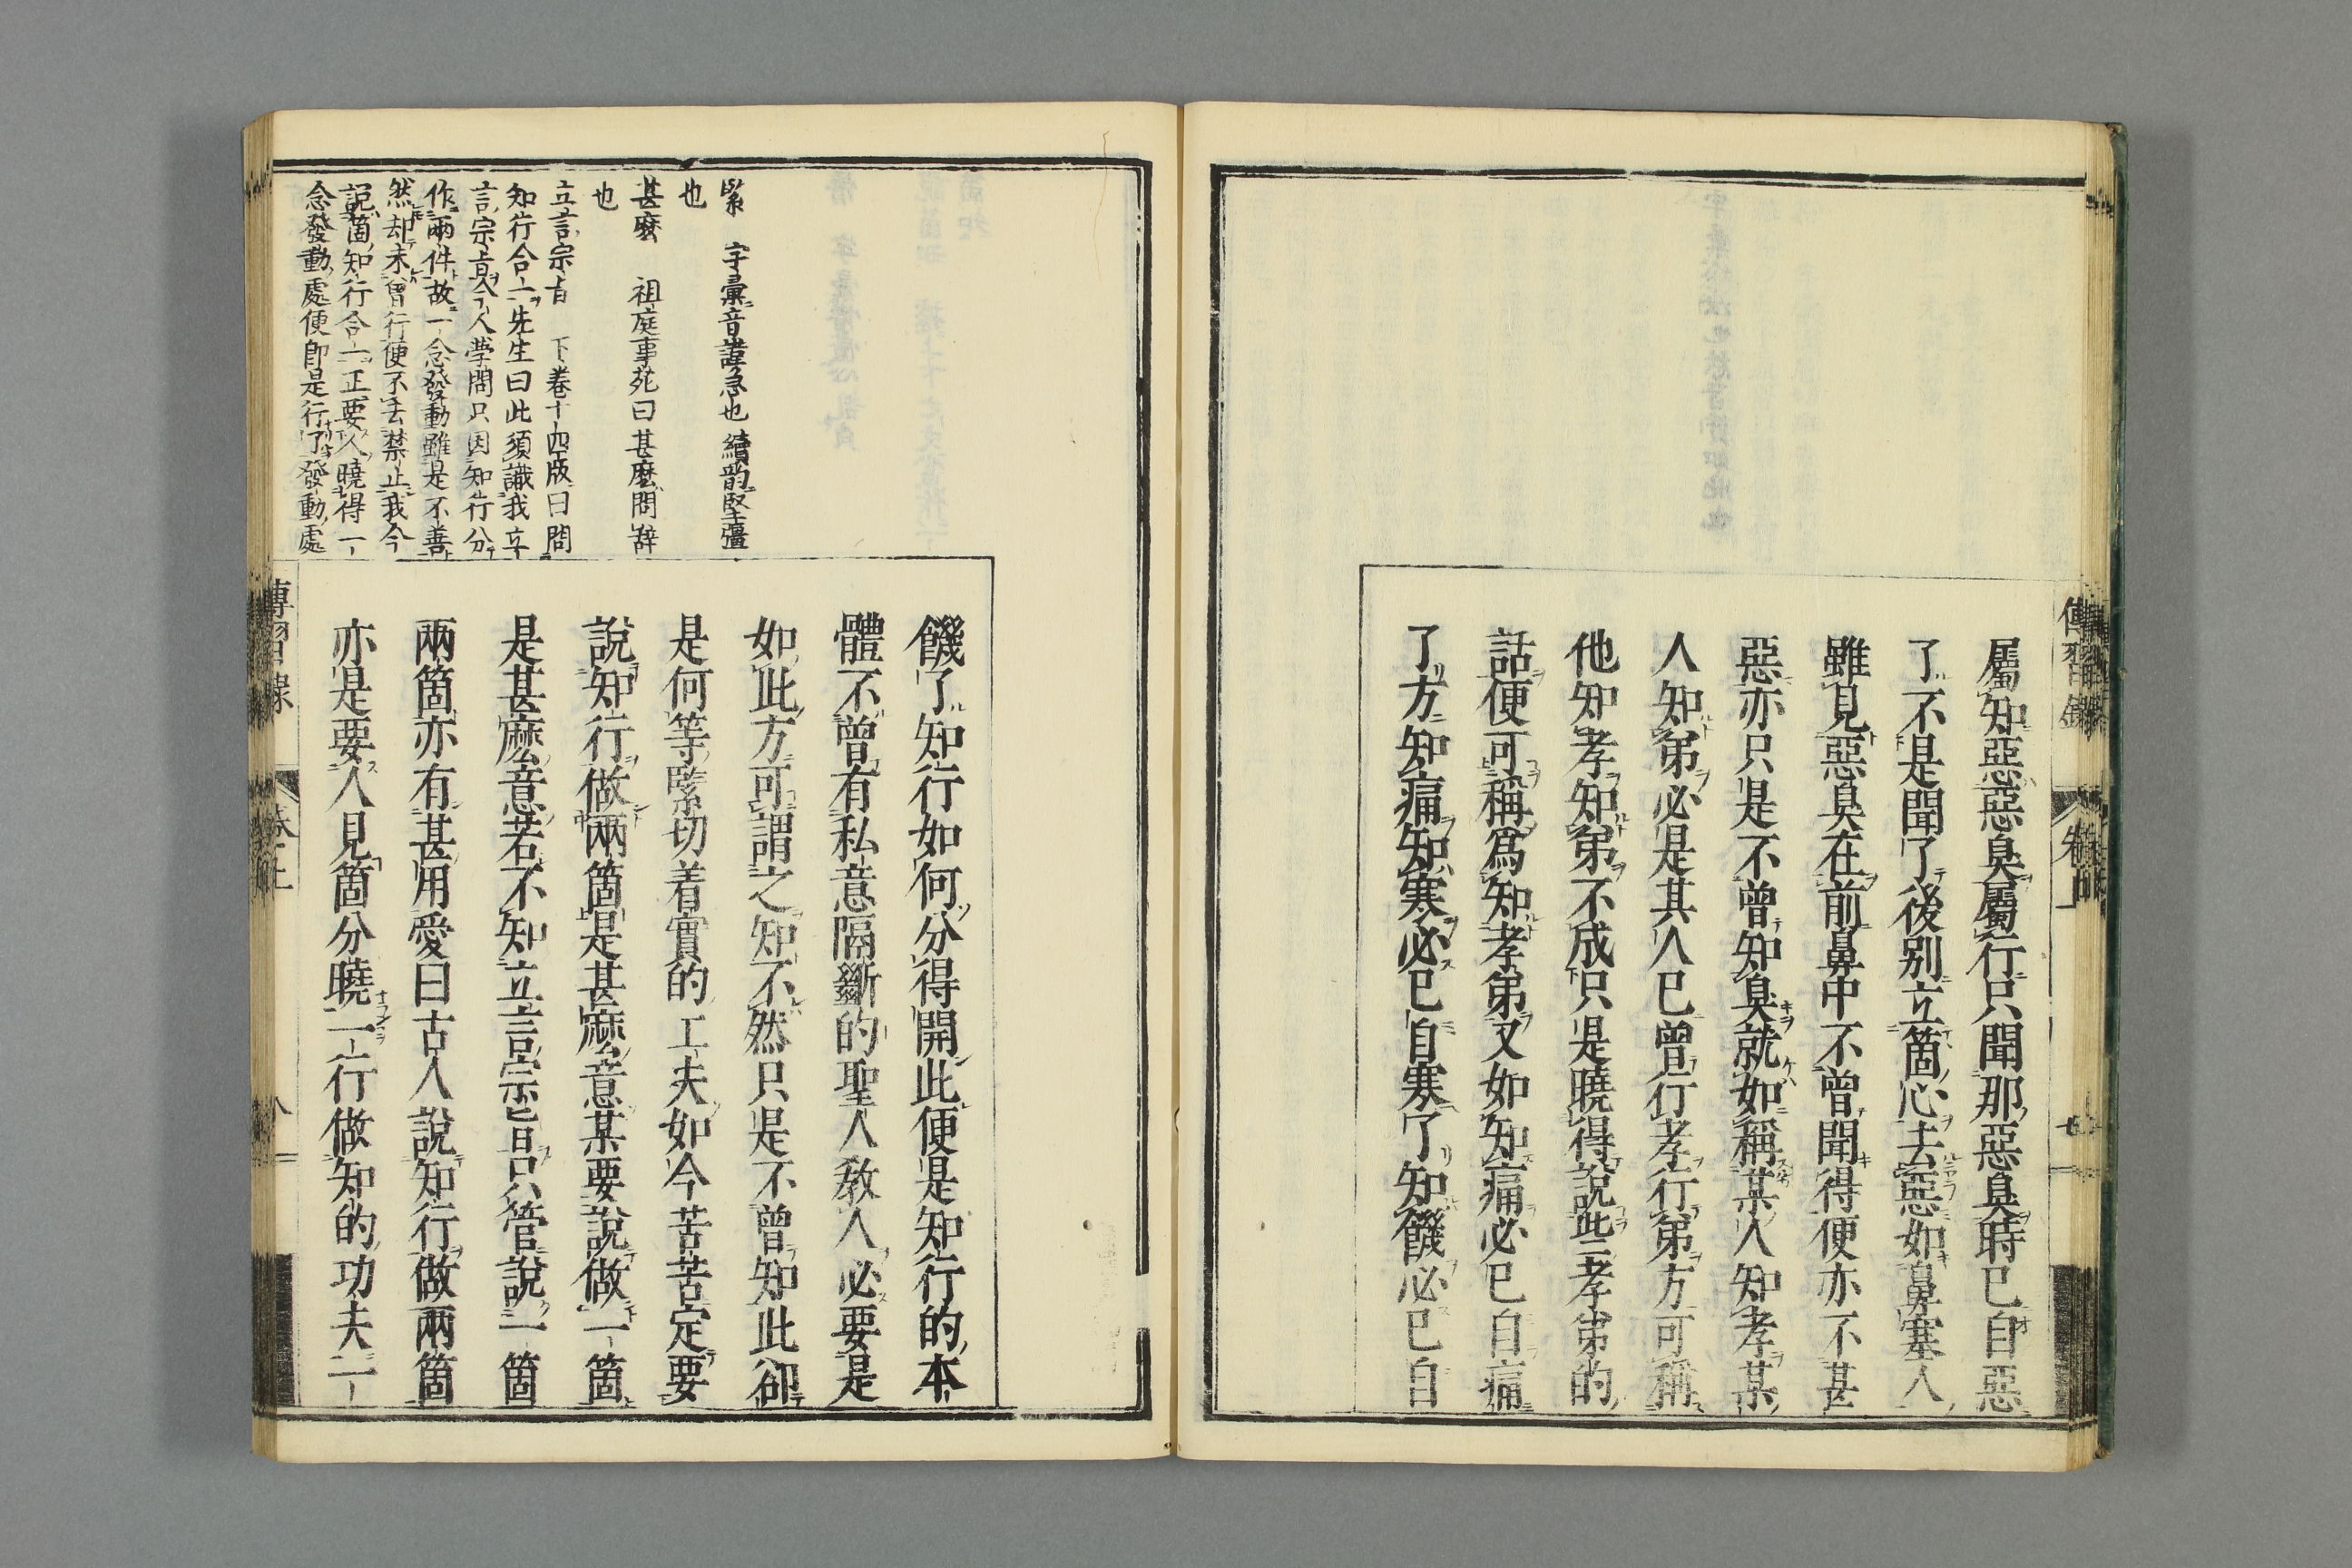 屬知惡惡臭屬行只聞那惡臭時已自惡
了不是聞了後別立箇心去惡如鼻塞人
雖見惡臭在前鼻中不曾聞得便亦不甚
惡亦只是不曾知臭就如稱某人知孝某
人知弟必是其人已曾行孝行弟方可稱
他知孝知弟不成只是曉得說些孝弟的
話便可稱爲知孝弟又如知痛必已自痛
了方知痛知寒必已自寒了知饑必已自
緊　字彙音謹急也續韵堅彊
也
甚麼　祖庭事苑曰甚麼問辭
也
立言宗旨　下卷十四版曰問
知行合一先生曰此須識我立
言宗旨今人學問只因知行分
作兩件故一念發動雖是不善
然却未曾行便不去禁止我今
說箇知行合一正要人曉得一
念發動處便卽是行了發動處
饑了知行如何分得開此便是知行的本
體不曾有私意隔斷的聖人敎人必要是
如此方可謂之知不然只是不曾知此卻
是何等緊切着實的工夫如今苦苦定要
說知行做兩箇是甚麼意某要說做一箇
是甚麼意若不知立言宗旨只管說一箇
兩箇亦有甚用愛曰古人說知行做兩箇
亦是要人見箇分曉一行做知的功夫一
傳習錄　卷之上　八